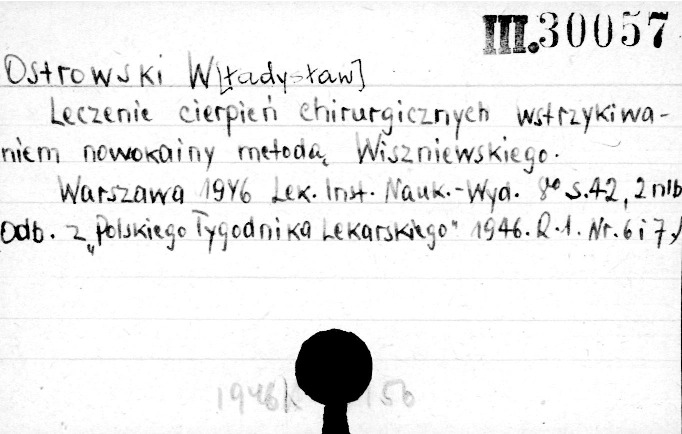 III.30057
Ostrowski W[ładysław]
Leczenie cierpień chirurgicznych wstrzykiwa-
niem nowokainy metodą Wiszniewskiego.
Warszawa 1946 Lek. Inst. Nauk.-Wyd. 8° s.42, 2 nlb
Odb. z „Polskiego Tygodnika Lekarskiego" 1946. R.1. Nr. 6 i 7,
1946K 150